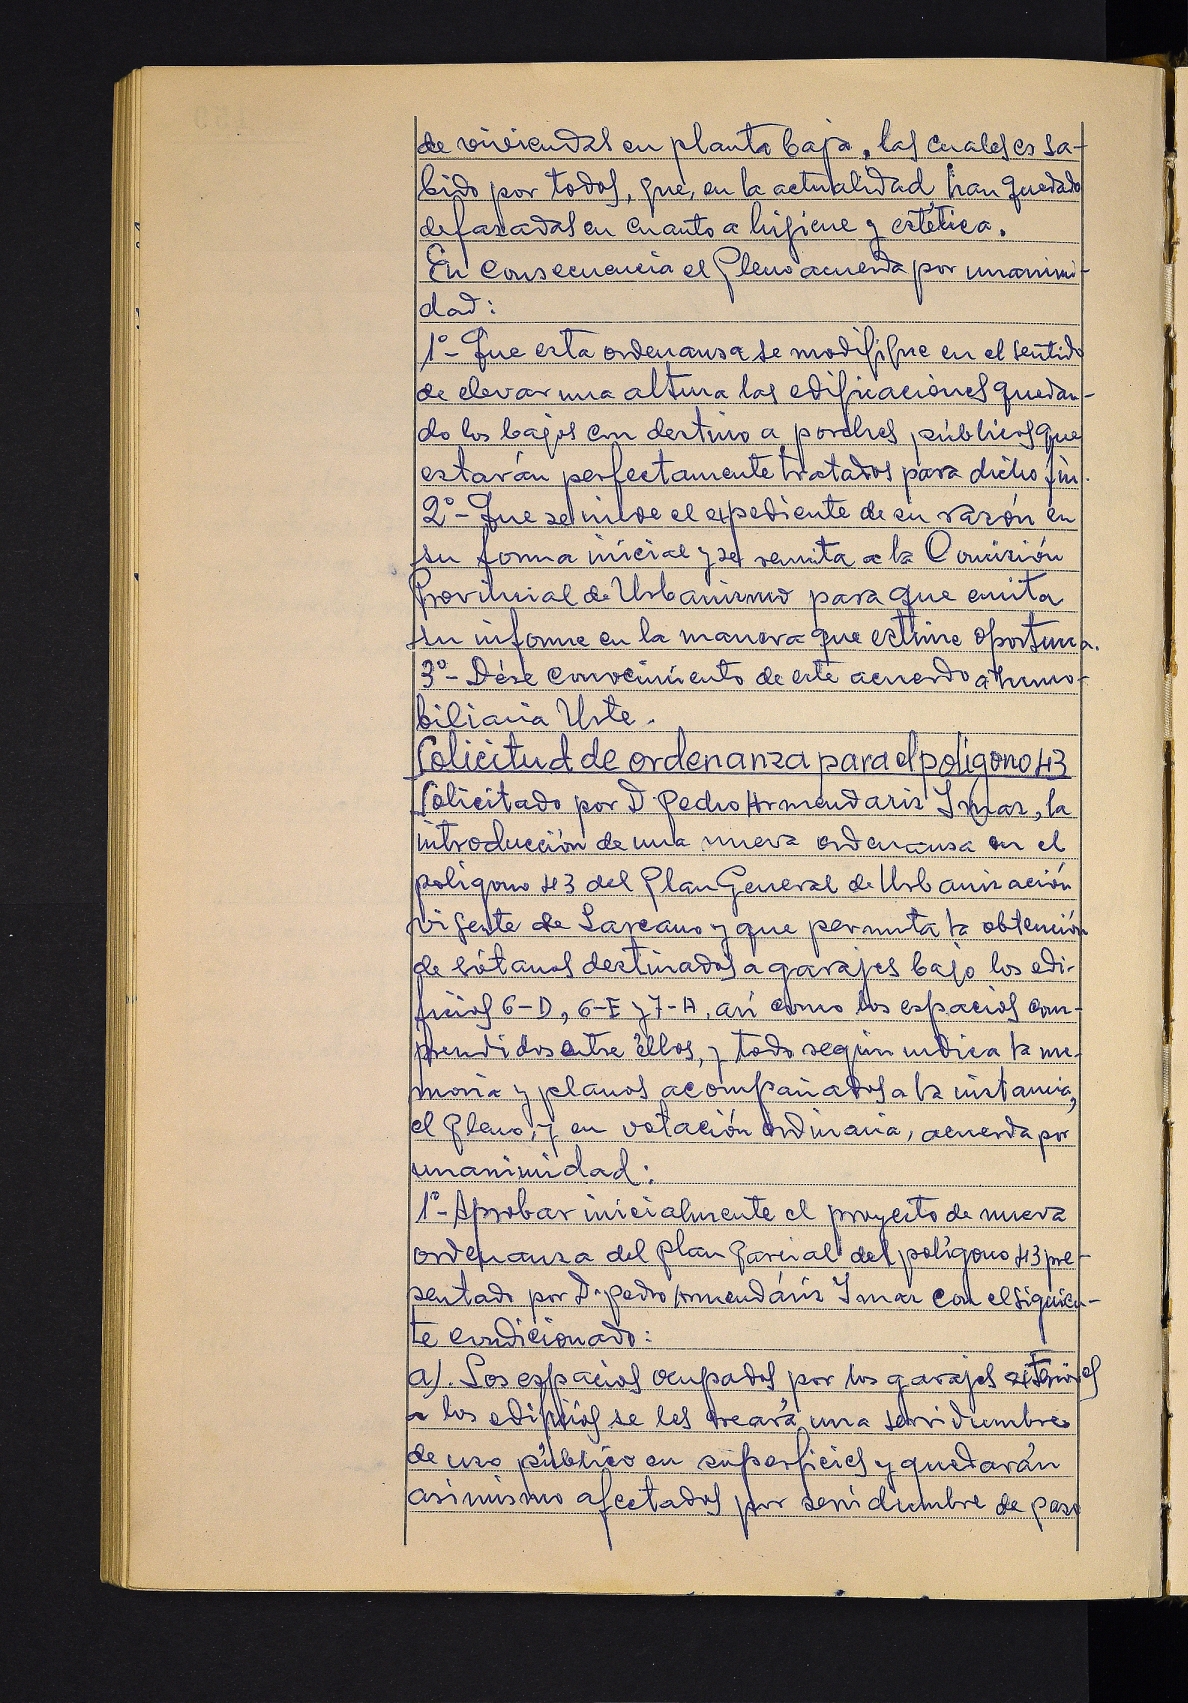 de viviendas en planta baja, las cuales es sa-
bido por todos, que, en la actualidad, han quedado
defasadas en cuanto a higiene y estética.
En consecuencia el Pleno acuerda por unanimi-
dad:
1º- Que esta ordenansa se modifique en el sentido
de elevar una altura las edificaciones quedan-
do los bajos con destino a porches públicos que
estarán perfectamente tratados para dicho fin.
2º- Que se inicie el expediente de su razón en
su forma inicial y se remita a la Comisión
Provincial de Urbanismo para que emita
su informe en la manera que estime oportuna.
3º- Dése conocimiento de este acuerdo a Inmo-
biliaria Urte.
Solicitud de ordenanza para el polígono 43
Solicitado por D. Pedro Armendariz Imaz, la
introducción de una nueva ordenansa en el
polígono 43 del Plan General de Urbanización
vigente de Lazcano y que permita la obtención
de sótanos destinados a garajes bajo los edi-
ficios 6-D, 6-E y 7-A, así como los espacios com-
prendidos entre éllos, y todo según indica la me-
moria y planos acompañados a la instancia,
el Pleno, y en votación ordinaria, acuerda por
unanimidad:
1º- Aprobar inicialmente el proyecto de nueva
ordenanza del Plan Parcial del polígono 43 pre-
sentado por D. Pedro Armendáriz Imaz con el siguien-
te condicionado:
a). Los espacios ocupados por los garajes exteriores
a los edificios se les creará una servidumbre
de uso público en superficies y quedarán
asimismo afectados por servidumbre de paso